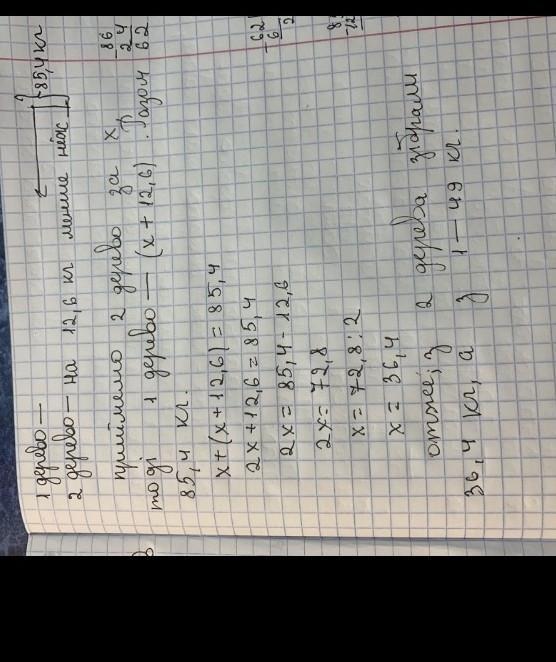 1 дерево —
2 дерево — на 12,6 кг менше ніж 85,4 кг
приймемо 2 дерево за x,
тоді 1 дерево — (x + 12,6). Разом
85,4 кг.
x + (x + 12,6) = 85,4
2x + 12,6 = 85,4
2x = 85,4 - 12,6
2x = 72,8
x = 72,8 : 2
x = 36,4
отже, з 2 дерева зібрали
36,4 кг, а з 1 — 49 кг.
86
24
62